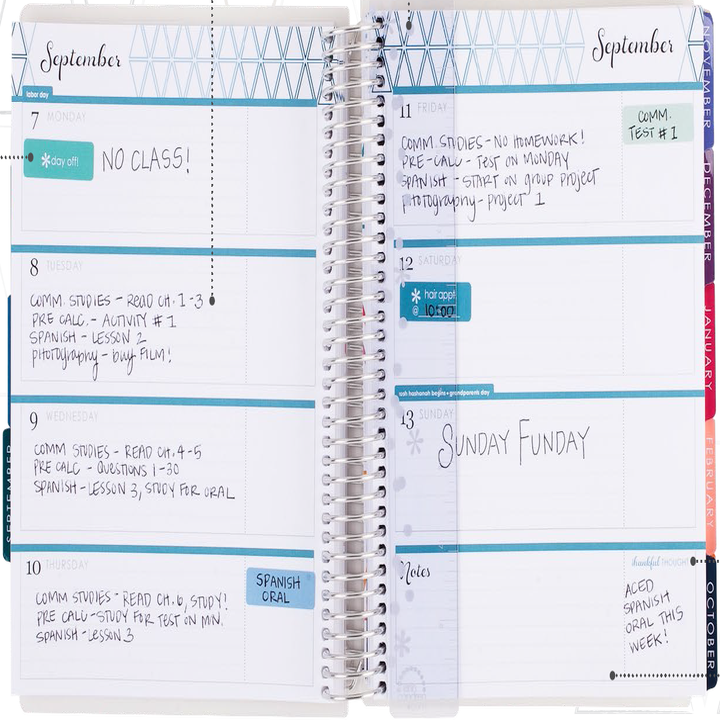 September
labor day
7 MONDAY
*day off!
NO CLASS!
8 TUESDAY
COMM. STUDIES - READ CH. 1-3
PRE CALC. - ACTIVITY # 1
SPANISH - LESSON 2
photography - buy FILM!
9 WEDNESDAY
COMM STUDIES - READ CH. 4-5
PRE CALC - QUESTIONS 1-30
SPANISH - LESSON 3, STUDY FOR ORAL
10 THURSDAY
SPANISH
ORAL
COMM STUDIES - READ CH. 6, STUDY!
PRE CALC - STUDY FOR TEST ON MN.
SPANISH - LESSON 3
SEPTEMBER
September
11 FRIDAY
COMM.
TEST # 1
COMM. STUDIES - NO HOMEWORK!
PRE-CALC - TEST ON MONDAY
SPANISH - START ON group project
photography - project 1
12 SATURDAY
hair appt!
@ 10:00
rosh hashanah begins • grandparents day
13 SUNDAY
SUNDAY FUNDAY
Notes
thankful THOUGHT
ACED
SPANISH
ORAL THIS
WEEK!
NOVEMBER
DECEMBER
JANUARY
FEBRUARY
OCTOBER